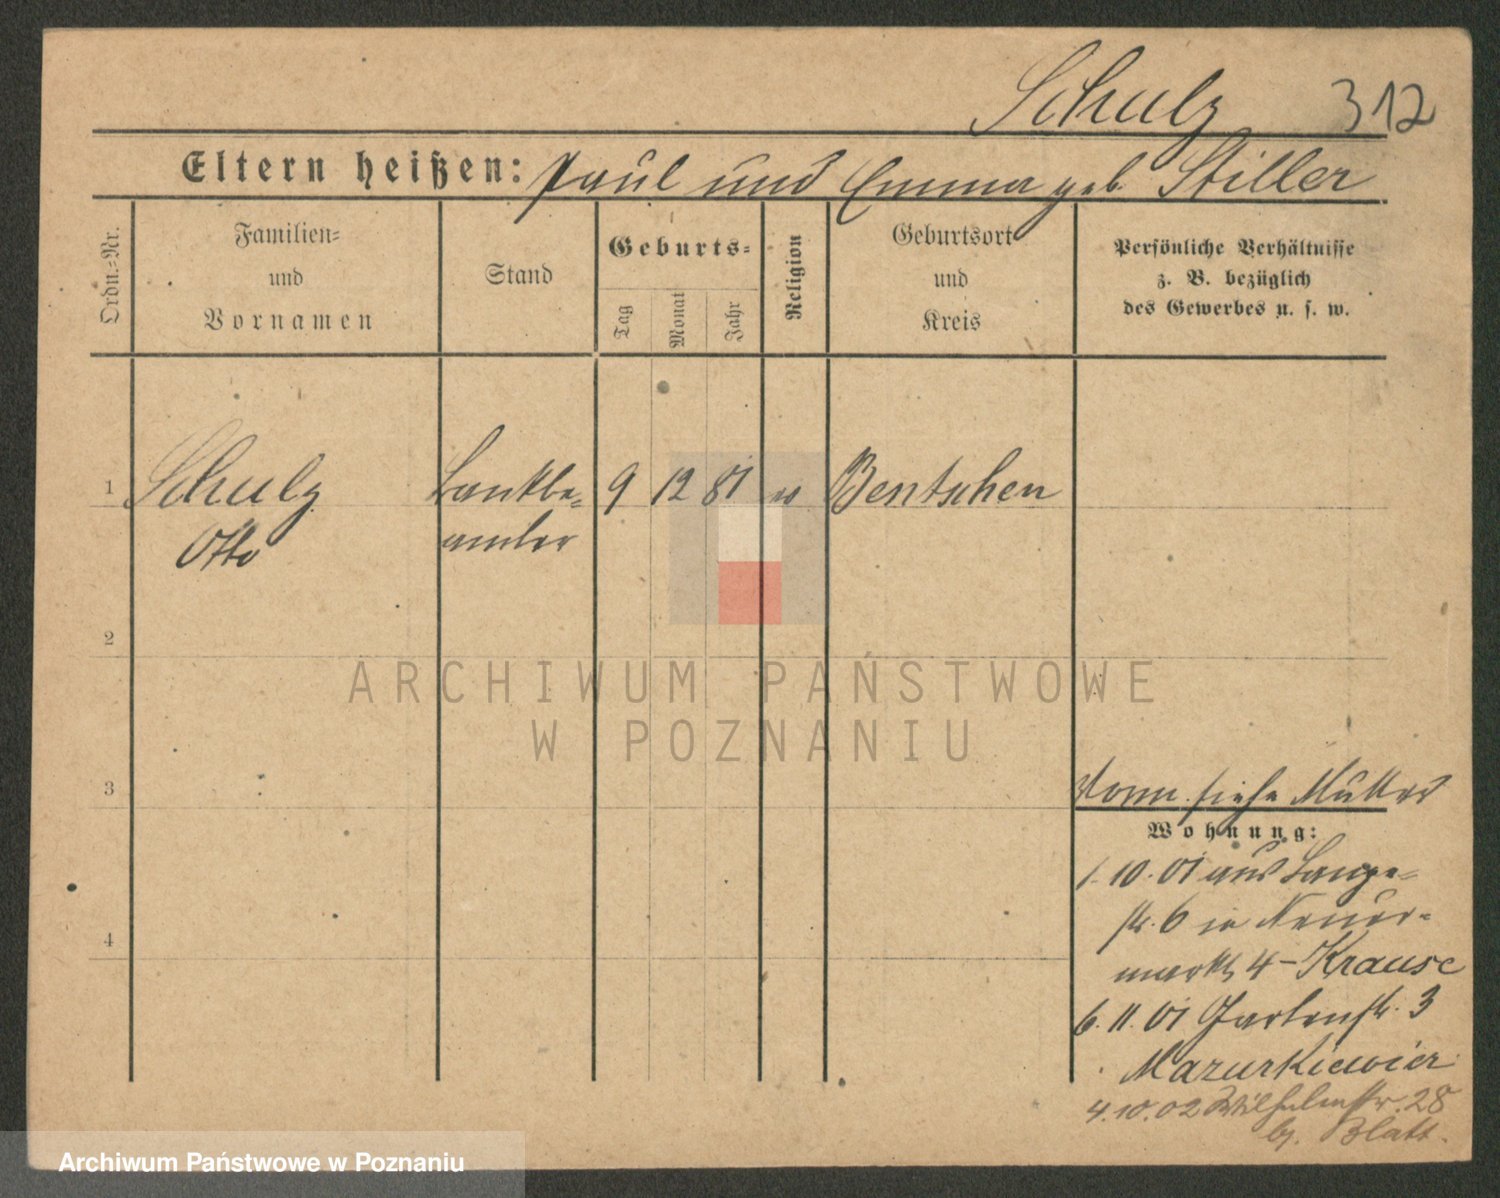 Schulz 312
Eltern heißen: Paul und Emma geb. Stiller
Ordn.-Nr.
Familien-
und
Vornamen
Stand
Geburts-
Tag
Monat
Jahr
Religion
Geburtsort
und
Kreis
Persönliche Verhältnisse
z. B. bezüglich
des Gewerbes u. s. w.
1 Schulz Bankbe= 9 12 81 Bentschen
Otto amter
2
ARCHIWUM PAŃSTWOWE
W POZNANIU
3
siehe Mutter
Wohnung:
1.10.01 aus Lange=
str. 6 in Neuer=
markt 4 - Krause
6.11.01 Gartenstr. 3
Mazurkiewicz
4.10.02 Wilhelmstr. 28
bj. Blatt.
4
Archiwum Państwowe w Poznaniu